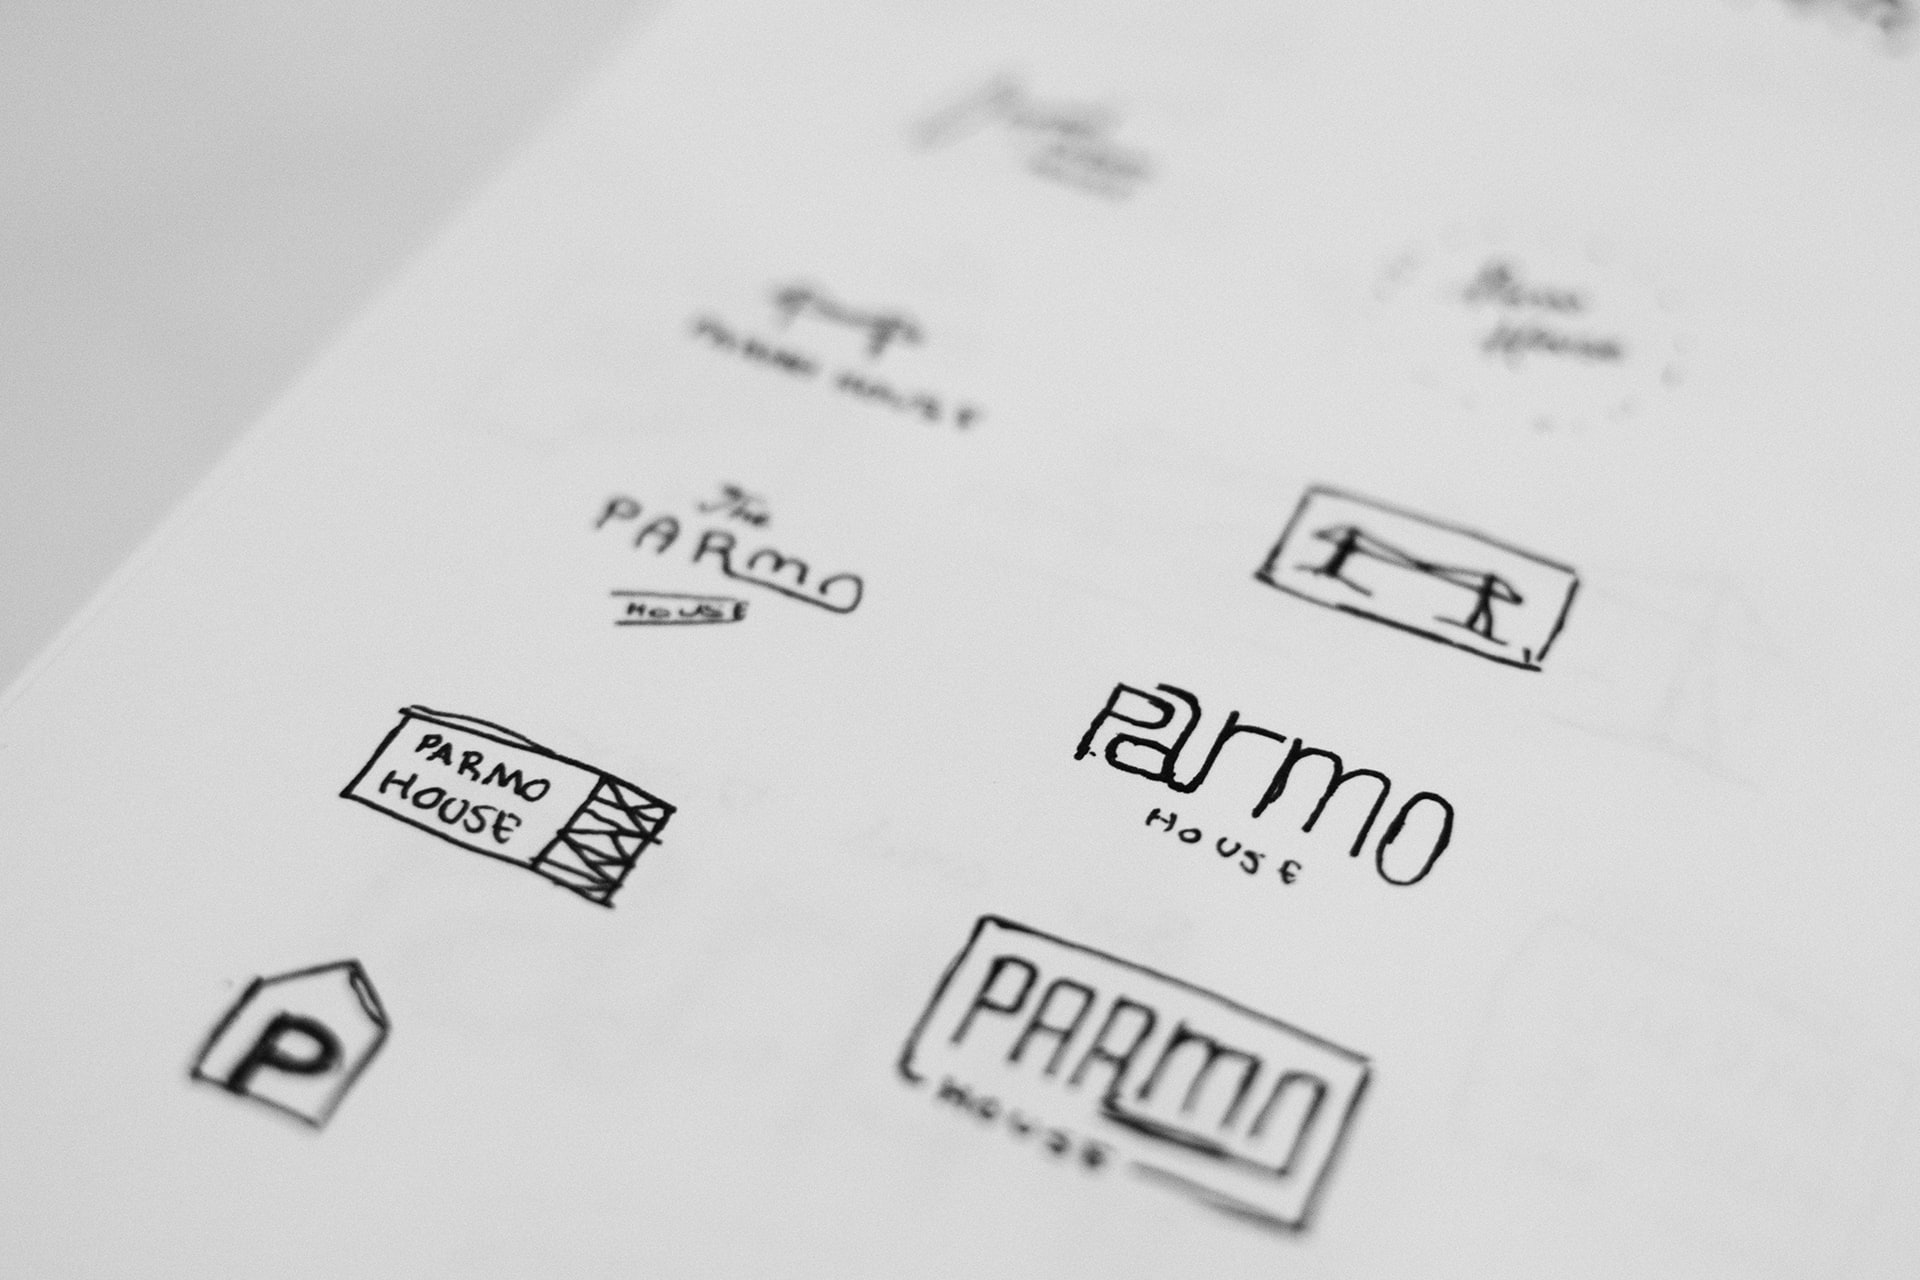 PARMO HOUSE
The
PARMO
HOUSE
Parmo
HOUSE
PARMO
HOUSE
P
PARMO
HOUSE